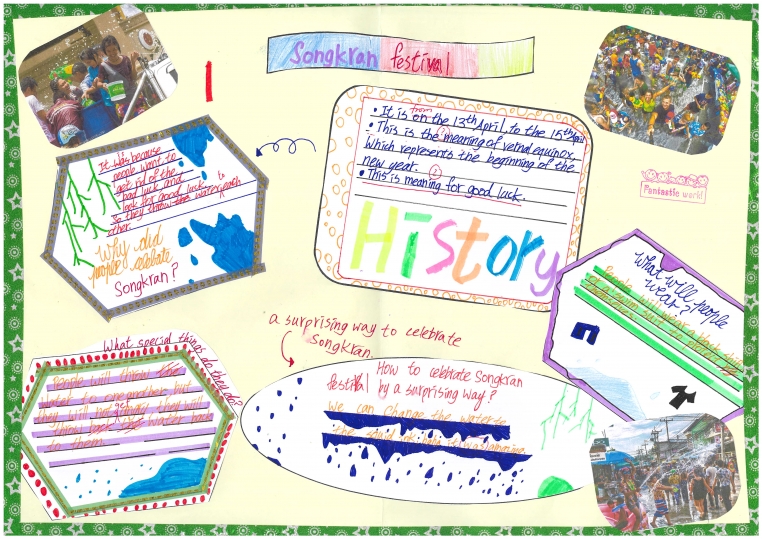 Songkran festival
from
• It is on the 13th April to the 15th April
• This is the meaning of vernal equinox,
Which represents the beginning of the
new year.
• This is meaning for good luck.
History
It was because
people want to
get rid of the
bad luck and
ask for good luck.
So they throw the water to each
other.
Why did
people celebate
Songkran?
Fantastic world
What will people
wear?
People will wear
or a swim suit
What special things do they do?
People will throw the
water to one another, but
they will not get angry, they will
throw back water back
to them.
a surprising way to celebrate
Songkran.
How to celebrate Songkran
festival by a surprising way?
We can change the water to
the